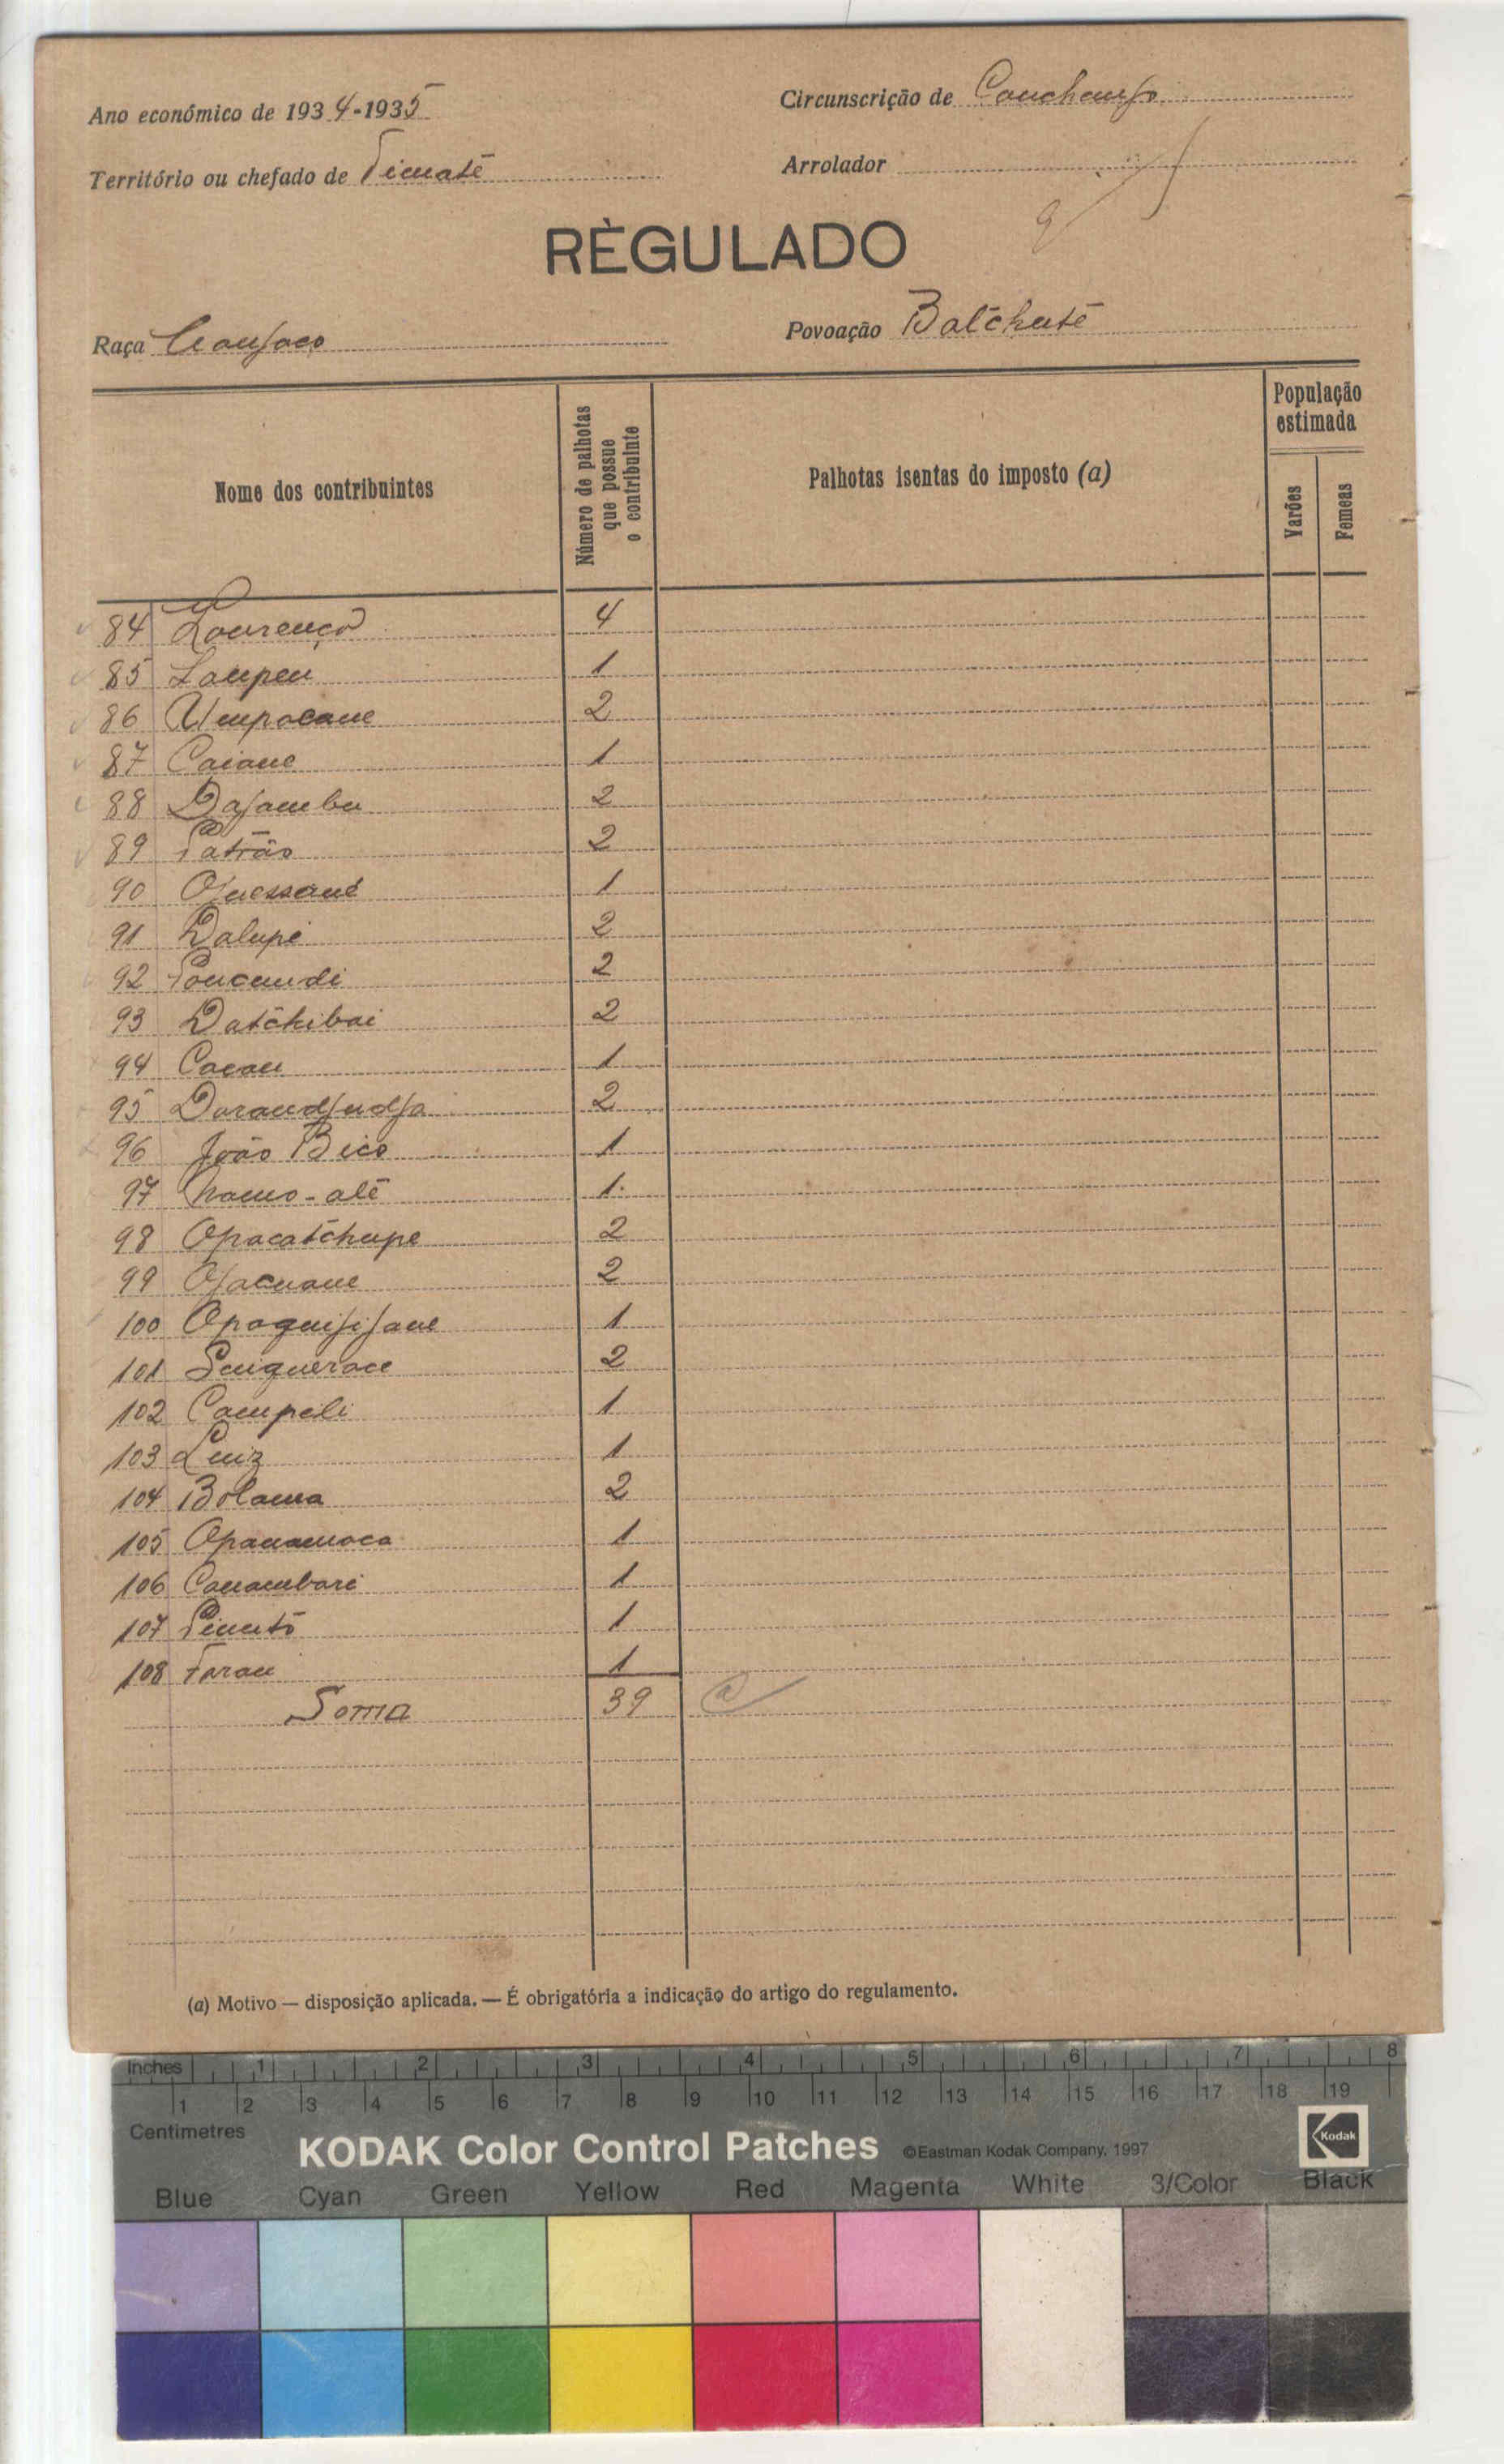 Ano económico de 1934-1935
Circunscrição de Canchungo
Território ou chefado de
Arrolador
RÈGULADO
Raça Manjaco
Povoação Batchuté
Nome dos contribuintes
Número de palhotas que possue o contribuinte
Palhotas isentas do imposto (a)
População estimada
Varões
Femeas
84 Lourenço 4
85 Laupeu 1
86 Umpacane 2
87 Caiane 1
88 Dajambu 2
89 Patrão 2
90 Ojuessané 1
91 Dalupé 2
92 2
93 Datchibai 2
94 Cacau 1
95 Darandjudja 2
96 João Bico 1
97 1
98 Opacatchupe 2
99 Ojacuane 2
100 Opaquijijane 1
101 2
102 Campeli 1
103 Luiz 1
104 Bolama 2
105 Opanamaca 1
106 Canambari 1
107 1
108 Farau 1
Soma 39
(a) Motivo — disposição aplicada. — É obrigatória a indicação do artigo do regulamento.
Inches 1 2 3 4 5 6 7 8
1 2 3 4 5 6 7 8 9 10 11 12 13 14 15 16 17 18 19
Centimetres
KODAK Color Control Patches ©Eastman Kodak Company, 1997 Kodak
Blue Cyan Green Yellow Red Magenta White 3/Color Black